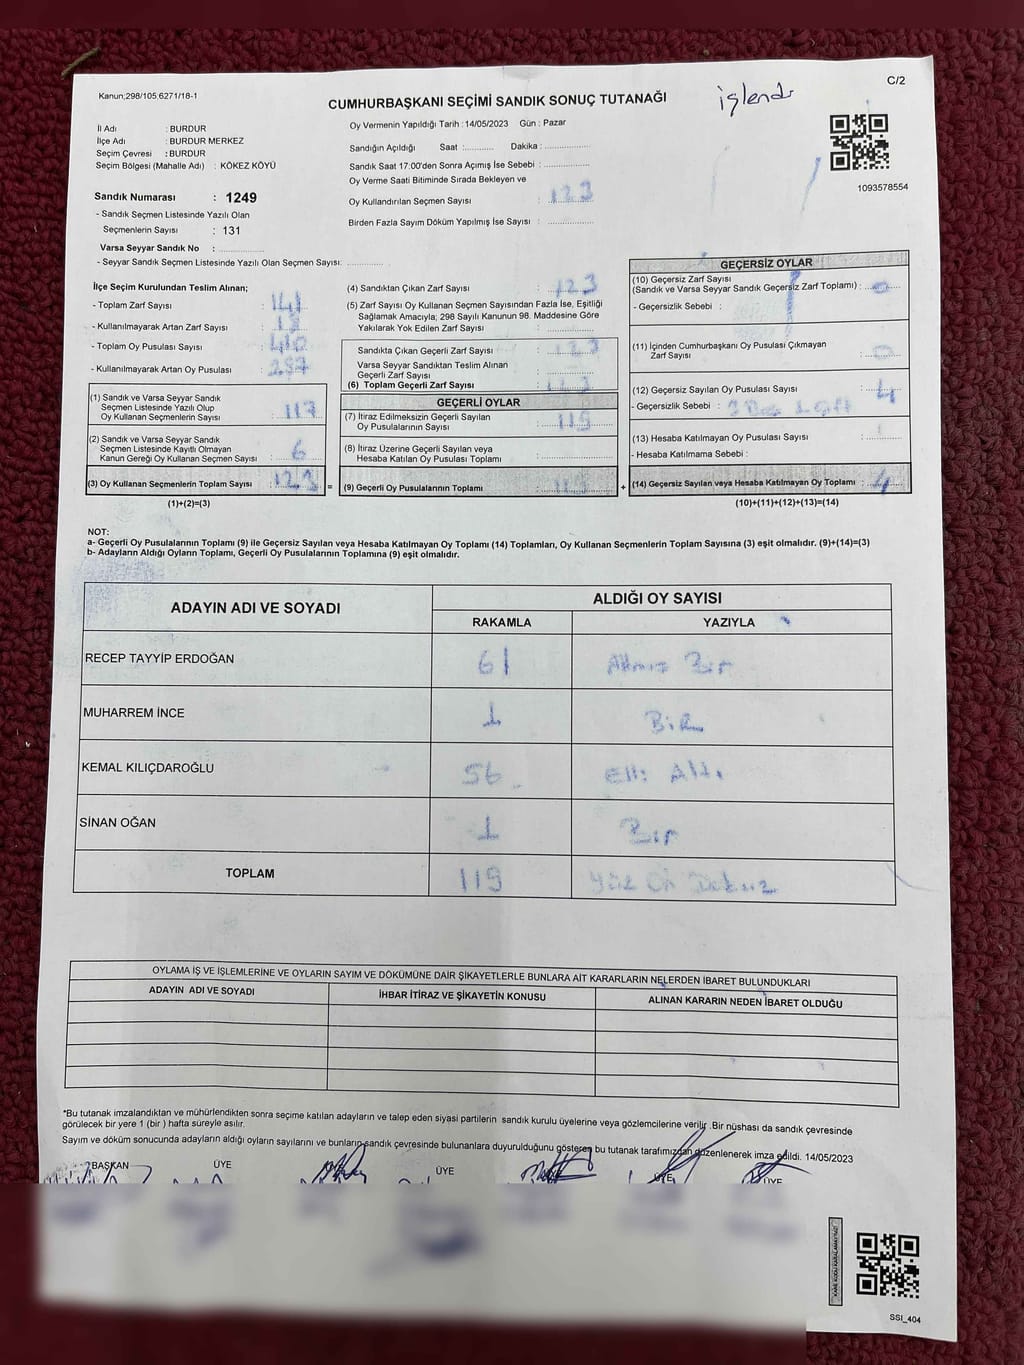 Kanun;298/105,6271/18-1
C/2
CUMHURBAŞKANI SEÇİMİ SANDIK SONUÇ TUTANAĞI
işlendi
İl Adı : BURDUR
İlçe Adı : BURDUR MERKEZ
Seçim Çevresi : BURDUR
Seçim Bölgesi (Mahalle Adı) : KÖKEZ KÖYÜ
Sandık Numarası : 1249
- Sandık Seçmen Listesinde Yazılı Olan
Seçmenlerin Sayısı : 131
Varsa Seyyar Sandık No :
- Seyyar Sandık Seçmen Listesinde Yazılı Olan Seçmen Sayısı:
Oy Vermenin Yapıldığı Tarih :14/05/2023 Gün : Pazar
Sandığın Açıldığı Saat : Dakika :
Sandık Saat 17:00'den Sonra Açımış İse Sebebi :
Oy Verme Saati Bitiminde Sırada Bekleyen ve
Oy Kullandırılan Seçmen Sayısı : 123
Birden Fazla Sayım Döküm Yapılmış İse Sayısı :
1093578554
İlçe Seçim Kurulundan Teslim Alınan;
- Toplam Zarf Sayısı : 141
- Kullanılmayarak Artan Zarf Sayısı :
- Toplam Oy Pusulası Sayısı : 410
- Kullanılmayarak Artan Oy Pusulası : 287
(1) Sandık ve Varsa Seyyar Sandık
Seçmen Listesinde Yazılı Olup
Oy Kullanan Seçmenlerin Sayısı : 117
(2) Sandık ve Varsa Seyyar Sandık
Seçmen Listesinde Kayıtlı Olmayan
Kanun Gereği Oy Kullanan Seçmen Sayısı : 6
(3) Oy Kullanan Seçmenlerin Toplam Sayısı : 123
(1)+(2)=(3)
=
(4) Sandıktan Çıkan Zarf Sayısı : 123
(5) Zarf Sayısı Oy Kullanan Seçmen Sayısından Fazla İse, Eşitliği
Sağlamak Amacıyla; 298 Sayılı Kanunun 98. Maddesine Göre
Yakılarak Yok Edilen Zarf Sayısı :
Sandıkta Çıkan Geçerli Zarf Sayısı : 123
Varsa Seyyar Sandıktan Teslim Alınan
Geçerli Zarf Sayısı :
(6) Toplam Geçerli Zarf Sayısı : 123
GEÇERLİ OYLAR
(7) İtiraz Edilmeksizin Geçerli Sayılan
Oy Pusulalarının Sayısı : 119
(8) İtiraz Üzerine Geçerli Sayılan veya
Hesaba Katılan Oy Pusulası Toplamı :
(9) Geçerli Oy Pusulalarının Toplamı : 119
+
GEÇERSİZ OYLAR
(10) Geçersiz Zarf Sayısı
(Sandık ve Varsa Seyyar Sandık Geçersiz Zarf Toplamı) : 0
- Geçersizlik Sebebi :
(11) İçinden Cumhurbaşkanı Oy Pusulası Çıkmayan
Zarf Sayısı : 0
(12) Geçersiz Sayılan Oy Pusulası Sayısı : 4
- Geçersizlik Sebebi :
(13) Hesaba Katılmayan Oy Pusulası Sayısı :
- Hesaba Katılmama Sebebi :
(14) Geçersiz Sayılan veya Hesaba Katılmayan Oy Toplamı : 4
(10)+(11)+(12)+(13)=(14)
NOT:
a- Geçerli Oy Pusulalarının Toplamı (9) ile Geçersiz Sayılan veya Hesaba Katılmayan Oy Toplamı (14) Toplamları, Oy Kullanan Seçmenlerin Toplam Sayısına (3) eşit olmalıdır. (9)+(14)=(3)
b- Adayların Aldığı Oyların Toplamı, Geçerli Oy Pusulalarının Toplamına (9) eşit olmalıdır.
ADAYIN ADI VE SOYADI
ALDIĞI OY SAYISI
RAKAMLA YAZIYLA
RECEP TAYYİP ERDOĞAN 61 Altmış Bir
MUHARREM İNCE 1 Bir
KEMAL KILIÇDAROĞLU 56 Elli Altı
SİNAN OĞAN 1 Bir
TOPLAM 119 Yüz On Dokuz
OYLAMA İŞ VE İŞLEMLERİNE VE OYLARIN SAYIM VE DÖKÜMÜNE DAİR ŞİKAYETLERLE BUNLARA AİT KARARLARIN NELERDEN İBARET BULUNDUKLARI
ADAYIN ADI VE SOYADI İHBAR İTİRAZ VE ŞİKAYETİN KONUSU ALINAN KARARIN NEDEN İBARET OLDUĞU
*Bu tutanak imzalandıktan ve mühürlendikten sonra seçime katılan adayların ve talep eden siyasi partilerin sandık kurulu üyelerine veya gözlemcilerine verilir. Bir nüshası da sandık çevresinde
görülecek bir yere 1 (bir ) hafta süreyle asılır.
Sayım ve döküm sonucunda adayların aldığı oyların sayılarını ve bunların sandık çevresinde bulunanlara duyurulduğunu gösteren bu tutanak tarafımızdan düzenlenerek imza edildi. 14/05/2023
BAŞKAN ÜYE ÜYE ÜYE ÜYE
KARE KODU KARALAMAYINIZ!
SSI_404